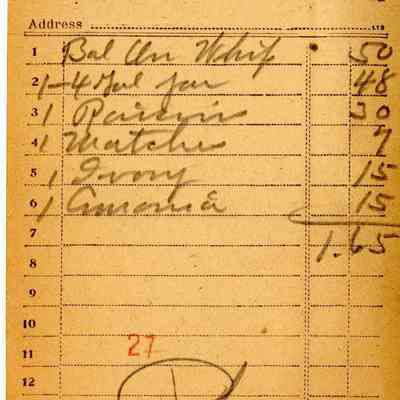 Address
1 Bal on Whip 50
2 1-4 Gal jar 48
3 1 Raisins 30
4 1 Matches 7
5 1 Ivory 15
6 1 Amonia 15
7 1.65
8
9
10
11 27
12